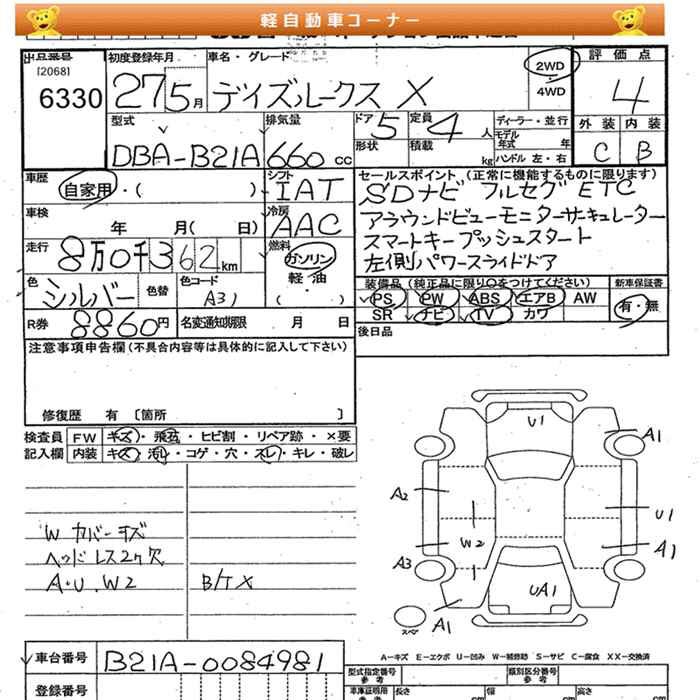 軽自動車コーナー
出品番号 初度登録年月 車名・グレード 2WD 評価点
[2068]
6330 27 5月 デイズルークス X ・4WD 4
型式 排気量 ドア 5 定員 4人 ディーラー・並行 外装 内装
DBA-B21A 660cc 形状 積載 kg モデル年式 年 C B
ハンドル 左・右
車歴 シフト セールスポイント (正常に機能するものに限ります)
自家用・( ) IAT SDナビ フルセグ ETC
車検 冷房 アラウンドビューモニターサーキュレーター
年 月( 日) AAC スマートキープッシュスタート
走行 8万0千362km 燃料 ガソリン 左側パワースライドドア
軽・油
( )
色 シルバー 色替 色コード A31 装備品 (純正品に限り○をつけてください) 新車保証書
PS PW ABS エアB AW 有・無
R券 8860円 名変通知期限 月 日 SR ナビ TV カワ
注意事項申告欄 (不具合内容等は具体的に記入して下さい) 後日品
修復歴 有 〔箇所 〕
検査員 FW キズ・飛石・ヒビ割・リペア跡・×要
記入欄 内装 キズ・汚レ・コゲ・穴・スレ・キレ・破レ
W カバーキズ
ヘッドレス2ケ欠
A・U.W2 B/TX
U1
A1
A2
U1
W2
A1
A3
UA1
A1
スペア
A-キズ E-エクボ U-凹み W-補修跡 S-サビ C-腐食 XX-交換済
車台番号 B21A-0084981 型式指定番号 参考 類別区分番号 参考
登録番号 車庫証明用 参考 長さ cm 幅 cm 高さ cm